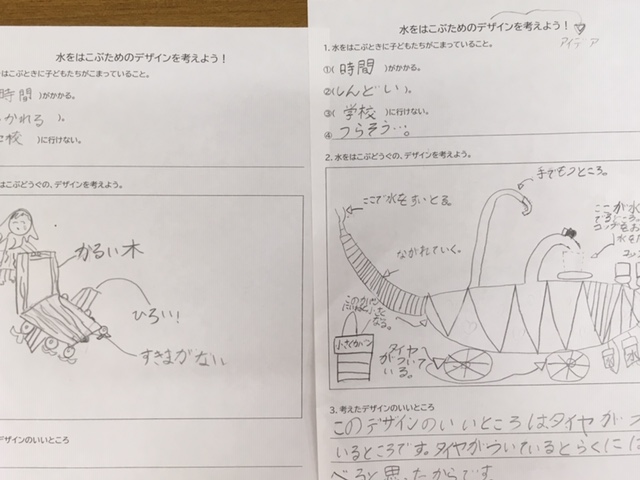 水をはこぶためのデザインを考えよう!
はこぶときに子どもたちがこまっていること。
時間)がかかる。
かれる)。
校)に行けない。
はこぶどうぐの、デザインを考えよう。
かるい木
ひろい!
すきまがない
デザインのいいところ
水をはこぶためのデザインを考えよう!
アイデア
1. 水をはこぶときに子どもたちがこまっていること。
①(時間)がかかる。
②(しんどい)。
③(学校)に行けない。
④ つらそう…。
2. 水をはこぶどうぐの、デザインを考えよう。
手でもつところ。
ここで水をすいとる。
ながれていく。
タイヤ
がついて
いる。
3. 考えたデザインのいいところ
このデザインのいいところはタイヤがつ
いるところです。タイヤがついているとらくには
べると思ったからです